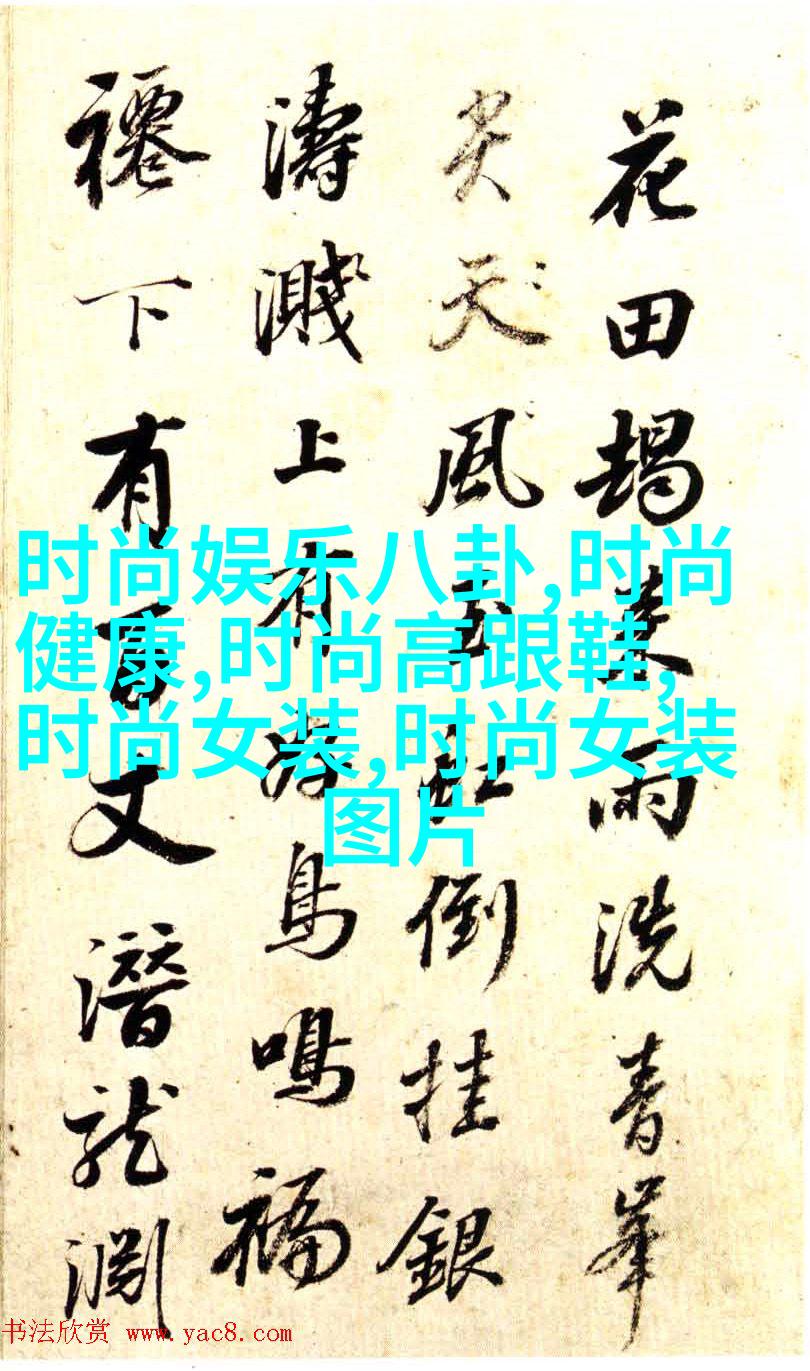 花田朅来雨洗青峯
尖天風玉虹倒挂銀
濤濺上有鳥鳴福
下有百丈潛龍淵
时尚娱乐八卦,时尚
健康,时尚高跟鞋,
时尚女装,时尚女装
图片
书法欣赏 www.yac8.com